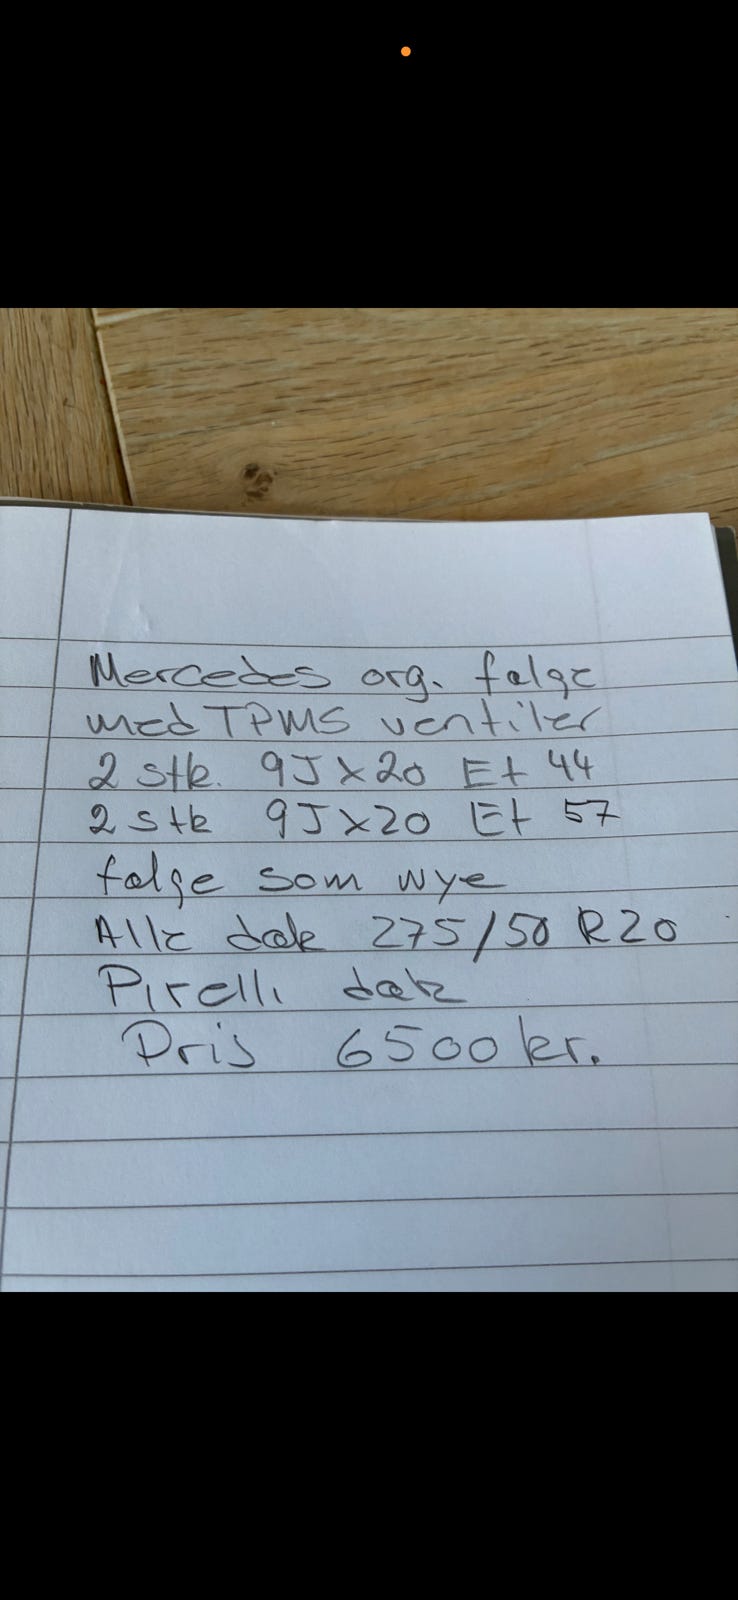 Mercedes org. fælge
med TPMS ventiler
2 stk. 9J x 20 Et 44
2 stk 9J x 20 Et 57
fælge som nye
Alle dæk 275/50 R20
Pirelli dæk
Pris 6500 kr.